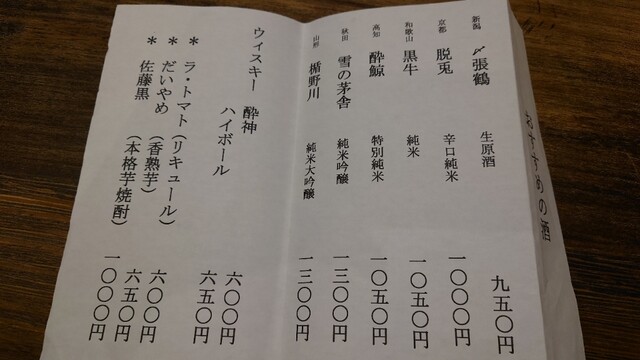 おすすめの酒
新潟 〆張鶴 生原酒 九五〇円
京都 脱兎 辛口純米 一〇〇〇円
和歌山 黒牛 純米 一〇五〇円
高知 酔鯨 特別純米 一〇五〇円
秋田 雪の茅舎 純米吟醸 一三〇〇円
山形 楯野川 純米大吟醸 一三〇〇円
ウィスキー 酔神 六〇〇円
ハイボール 六五〇円
* ラ・トマト(リキュール) 六〇〇円
* だいやめ (香熟芋) 六五〇円
* 佐藤黒 (本格芋焼酎) 一〇〇〇円